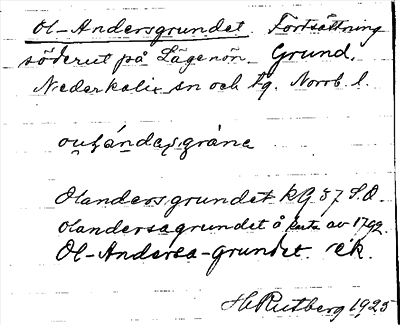 Ol-Andersgrundet. Fortsättning
söderut på Lägenön. Grund.
Nederkalix sn och tg. Norrb. l.
Olandersgrundet kg 37 S.O.
Olandersagrundet å karta av 1792.
Ol-Andersa-grundet. ek.
H Rutberg 1925